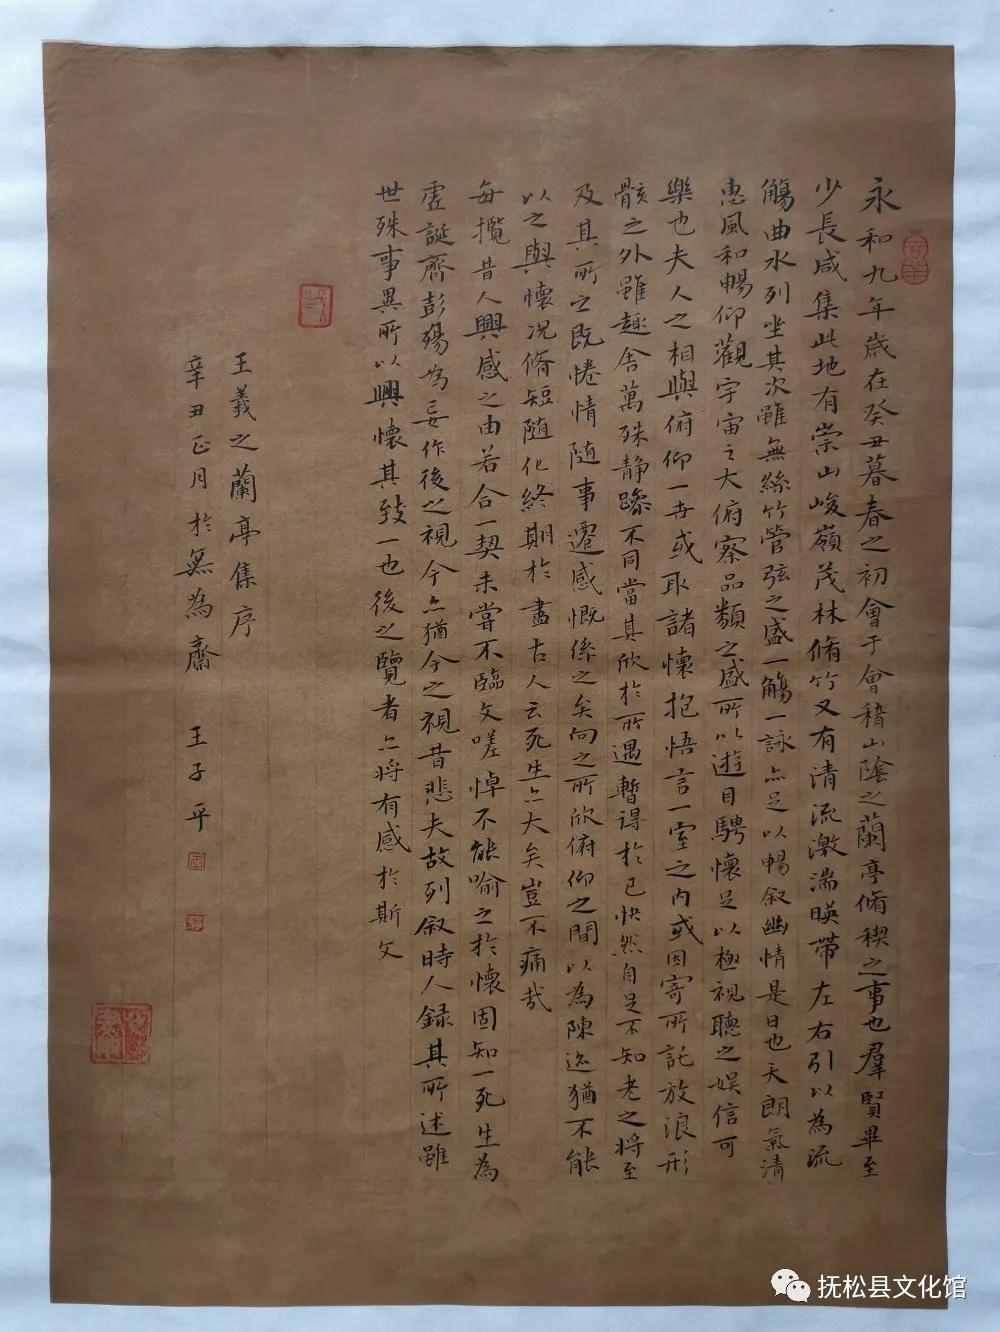 永和九年歲在癸丑暮春之初會于會稽山陰之蘭亭脩稧之事也羣賢畢至
少長咸集此地有崇山峻嶺茂林脩竹又有清流激湍暎帶左右引以為流
觴曲水列坐其次雖無絲竹管弦之盛一觴一詠亦足以暢叙幽情是日也天朗氣清
惠風和暢仰觀宇宙之大俯察品類之盛所以遊目騁懷足以極視聽之娱信可
樂也夫人之相與俯仰一世或取諸懷抱悟言一室之内或因寄所託放浪形
骸之外雖趣舍萬殊静躁不同當其欣於所遇暫得於己快然自足不知老之將至
及其所之既惓情随事遷感慨係之矣向之所欣俯仰之間以為陳迹猶不能
以之興懷况脩短随化終期於盡古人云死生亦大矣豈不痛哉
每攬昔人興感之由若合一契未嘗不臨文嗟悼不能喻之於懷固知一死生為
虚誕齊彭殤為妄作後之視今亦猶今之視昔悲夫故列叙時人錄其所述雖
世殊事異所以興懷其致一也後之覽者亦將有感於斯文
王羲之蘭亭集序
辛丑正月於無為齋 王子平
抚松县文化馆